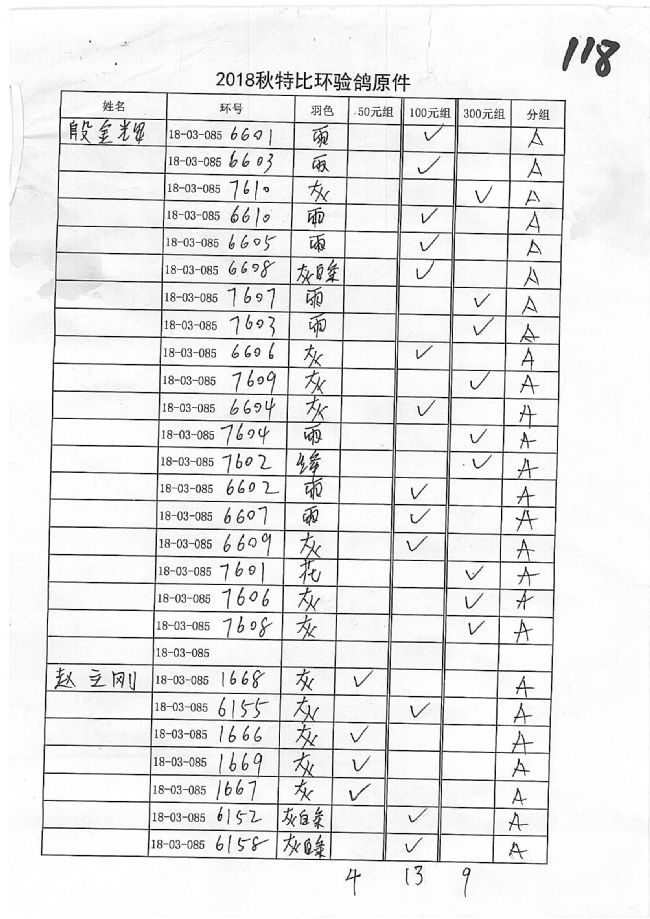 118
2018秋特比环验鸽原件
姓名 环号 羽色 50元组 100元组 300元组 分组
殷金辉 18-03-085 6601 雨 ✓ A
18-03-085 6603 雨 ✓ A
18-03-085 7610 灰 ✓ A
18-03-085 6610 雨 ✓ A
18-03-085 6605 雨 ✓ A
18-03-085 6608 灰白条 ✓ A
18-03-085 7607 雨 ✓ A
18-03-085 7603 雨 ✓ A
18-03-085 6606 灰 ✓ A
18-03-085 7609 灰 ✓ A
18-03-085 6604 灰 ✓ A
18-03-085 7604 雨 ✓ A
18-03-085 7602 绛 ✓ A
18-03-085 6602 雨 ✓ A
18-03-085 6607 雨 ✓ A
18-03-085 6609 灰 ✓ A
18-03-085 7601 花 ✓ A
18-03-085 7606 灰 ✓ A
18-03-085 7608 灰 ✓ A
18-03-085
赵立刚 18-03-085 1668 灰 ✓ A
18-03-085 6155 灰 ✓ A
18-03-085 1666 灰 ✓ A
18-03-085 1669 灰 ✓ A
18-03-085 1667 灰 ✓ A
18-03-085 6152 灰白条 ✓ A
18-03-085 6158 灰白条 ✓ A
4 13 9